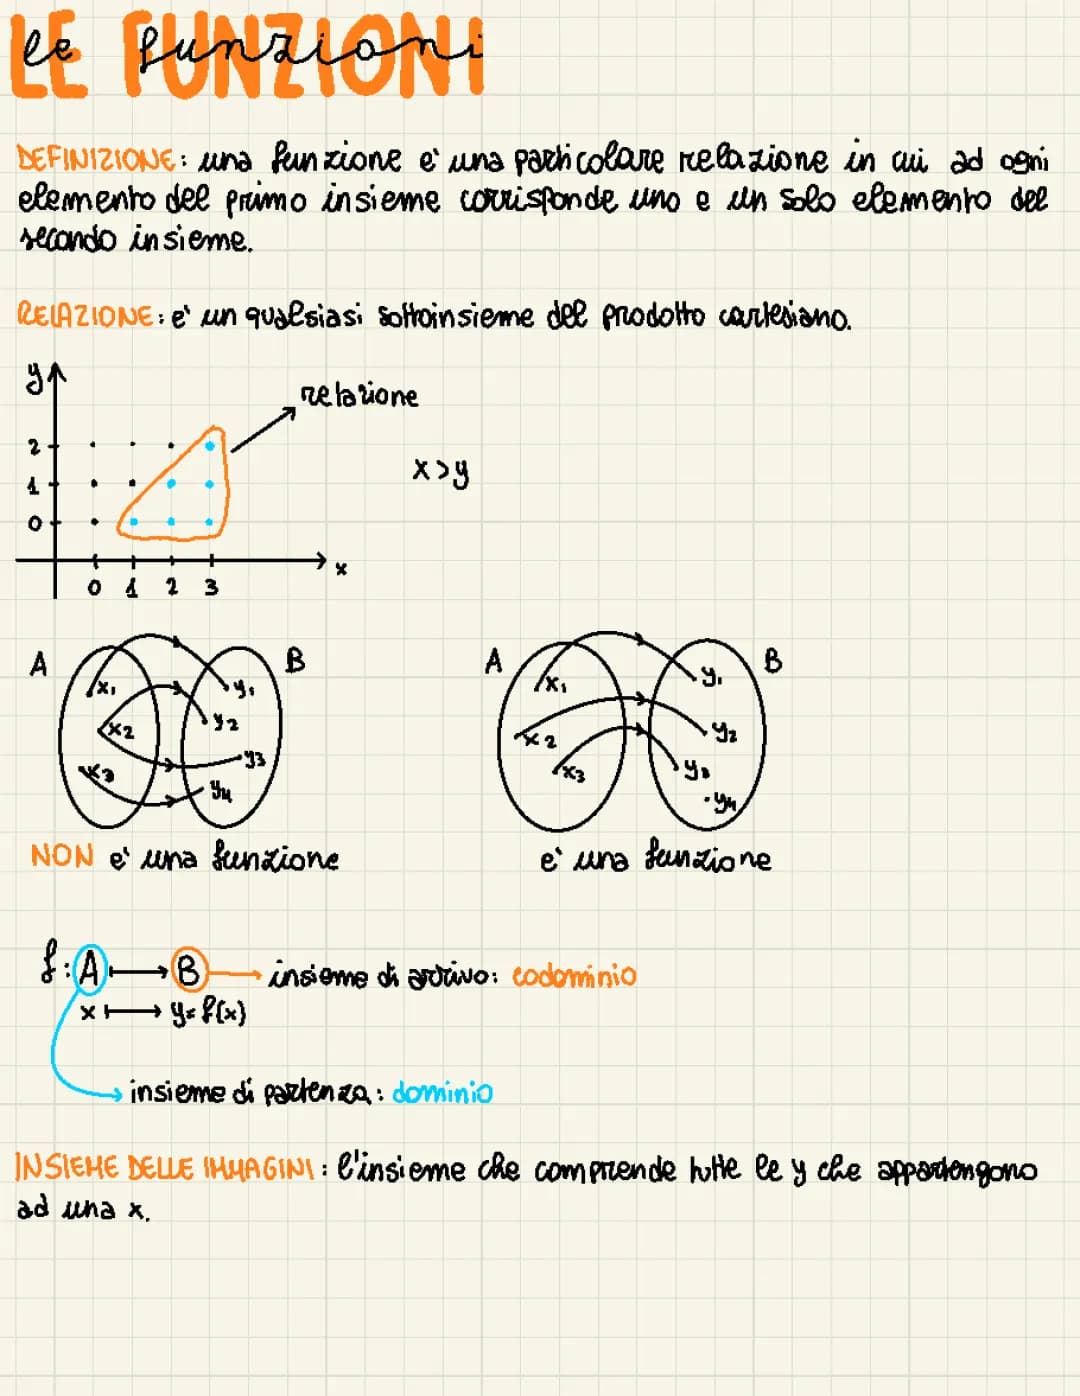 LE FUNZIONI
le funzioni
DEFINIZIONE: una funzione e' una particolare relazione in cui ad ogni
elemento del primo insieme corrisponde uno e un solo elemento del
secondo insieme.
RELAZIONE: e' un qualsiasi sottoinsieme del prodotto cartesiano.
y
relazione
2
x>y
1
0
x
0 1 2 3
A B A B
x₁ y₁ x₁ y₁
x₂ y₂ x₂ y₂
x₃ y₃ x₃ y₃
y₄ y₄
NON e' una funzione e' una funzione
f: A ⟼ B → insieme di arrivo: codominio
x ⟼ y=f(x)
insieme di partenza: dominio
INSIEME DELLE IMMAGINI: l'insieme che comprende tutte le y che appartengono
ad una x.